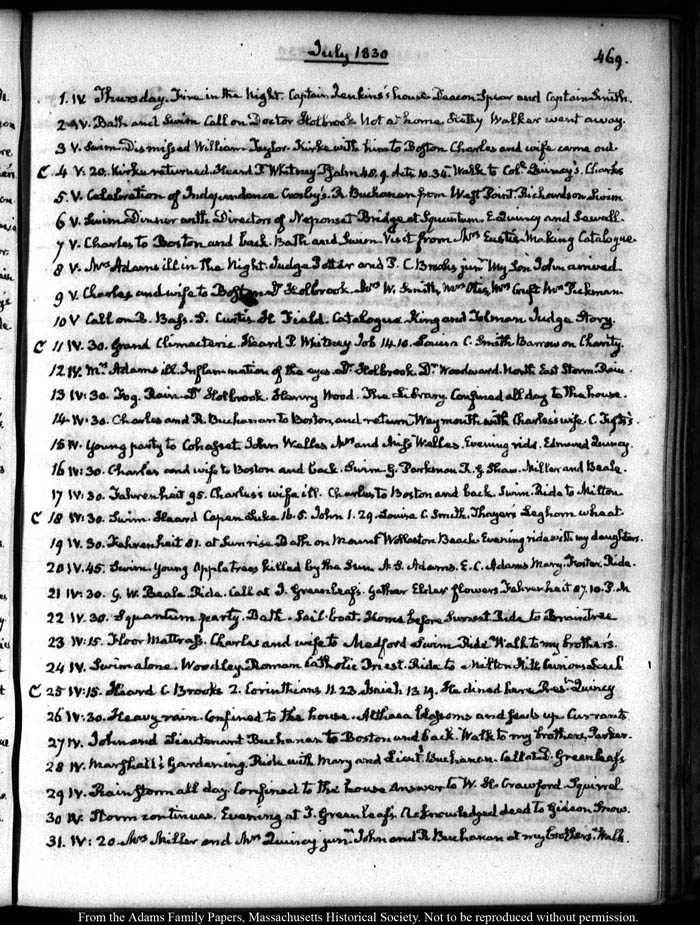 July 1830
469.
1. IV. Thursday. Fire in the Night. Captain Jenkins's house Deacon Spear and Captain Smith.
2. IV. Bath and Swim Call on Doctor Holbrook Not at home Walker went away.
3 V. Swim. Dismissed William Taylor. Kirke with him to Boston Charles and wife came out
C 4 V: 20. Kirke returned. Heard P. Whitney Psalm 48.9. Acts 10.34. Walk to Col. Quincy's. Charles
5. V. Celebration of Independence Crosby's. R. Buchanan from West Point. Richardson Swim
6 V. Swim. Dinner with Directors of Neponset Bridge at Squantum. E. Quincy and Sewall.
7 V. Charles to Boston and back. Bath and Swim. Visit from Mrs Eustis. Making Catalogue.
8 V. Mrs Adams ill in the Night. Judge Potter and P. C. Brooks junr. My Son John arrived.
9 V. Charles and wife to Boston. Dr Holbrook. Mrs W. Smith, Mrs Otis, Mrs Wm Pickman
10 V Call on B. Bass. S. Curtis. H. Field. Catalogue. King and Tolman. Judge Story.
C 11 IV. 30. Grand Climacteric. Heard P. Whitney Job 14.10. Louisa C. Smith. Barrow on Charity.
12 IV. Mrs Adams ill. Inflammation of the eyes. Dr Holbrook. Dr Woodward. North East Storm. Rain.
13 IV: 30. Fog. Rain. Dr Holbrook. Henry Wood. The Library. Confined all day to the house.
14. IV. 30. Charles and R. Buchanan to Boston, and return. Weymouth with Charles's wife. C. Tufts's.
15 IV. Young party to Cohasset. John Welles Mrs and Miss Welles. Evening ride. Edmund Quincy.
16 IV: 30. Charles and wife to Boston and back. Swim. G. Parkman R. G. Shaw. Miller and Beale.
17 IV: 30. Fahrenheit 95. Charles's wife ill. Charles to Boston and back. Swim. Ride to Milton.
C 18 IV: 30. Swim. Heard Capen Luke 16.5. John 1.29. Louisa C. Smith. Thayer's Leghorn wheat.
19 IV. 30. Fahrenheit 81. at Sunrise Bath on Mount Wollaston Beach. Evening ride with my daughters.
20 IV. 45. Swim. Young Apple trees killed by the Sun. A. S. Adams. E. C. Adams Mary. Foster. Ride.
21 IV: 30. G. W. Beale. Ride. Call at Greenleaf's. Gather Elder flowers. Fahrenheit 87. 10. P. M
22 IV. 30. Squantum party. Bath. Sail-boat. Home before Sunset. Ride to Braintree
23 IV: 15. Floor Mattrass. Charles and wife to Medford Swim. Ride. Walk to my brother's.
24 IV. Swim alone. Woodley Roman Catholic Priest. Ride to Milton Hill. Curious Seal
C 25 IV: 15. Heard C Brooks 2. Corinthians 11.23. Isaiah 13.19. He dined here. Quincy
26 IV: 30. Heavy rain. Confined to the house. Althaea blossoms and up. Currants
27 IV. John and Lieutenant Buchanan to Boston and back. Walk to my brothers. Parker.
28 IV. Marshall's Gardening. Ride with Mary and Lieut. Buchanan. Call at D. Greenleafs
29 IV. Rain Storm all day. Confined to the house Answer to W. H. Crawford. Squirrel
30 IV. Storm continues. Evening at Greenleafs. Acknowledged deed to Gideon Snow.
31. IV: 20. Mrs Miller and Mrs Quincy junr. John and R Buchanan at my brothers. Walk.
From the Adams Family Papers, Massachusetts Historical Society. Not to be reproduced without permission.